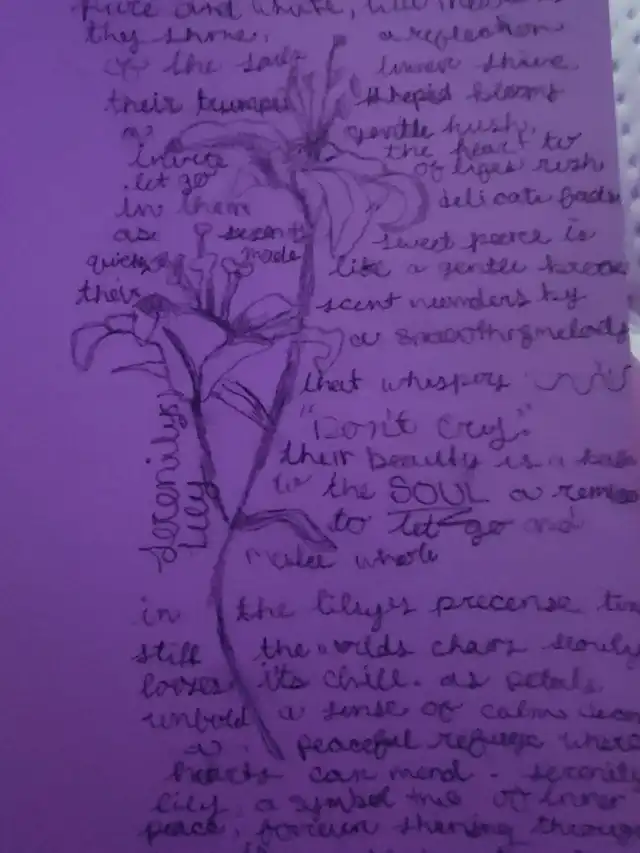 they shone. a reflection
of the souls inner shine
their trumpet shaped blooms
a gentle hush,
invite the heart to
let go of lifes rush
in them delicate
as scents sweet peace is
quickly made like a gentle
their scent by
a smoothng melody
that whispers
"Don't cry."
their beauty is a
to the SOUL a
to let go and
make whole
Serenitys
Lily
in the precense
still the chaos slowly
looses its chill. as petals
a sense of calm
a peaceful refuge where
hearts can mend. serenity
lily, a symbol true of inner
peace, through